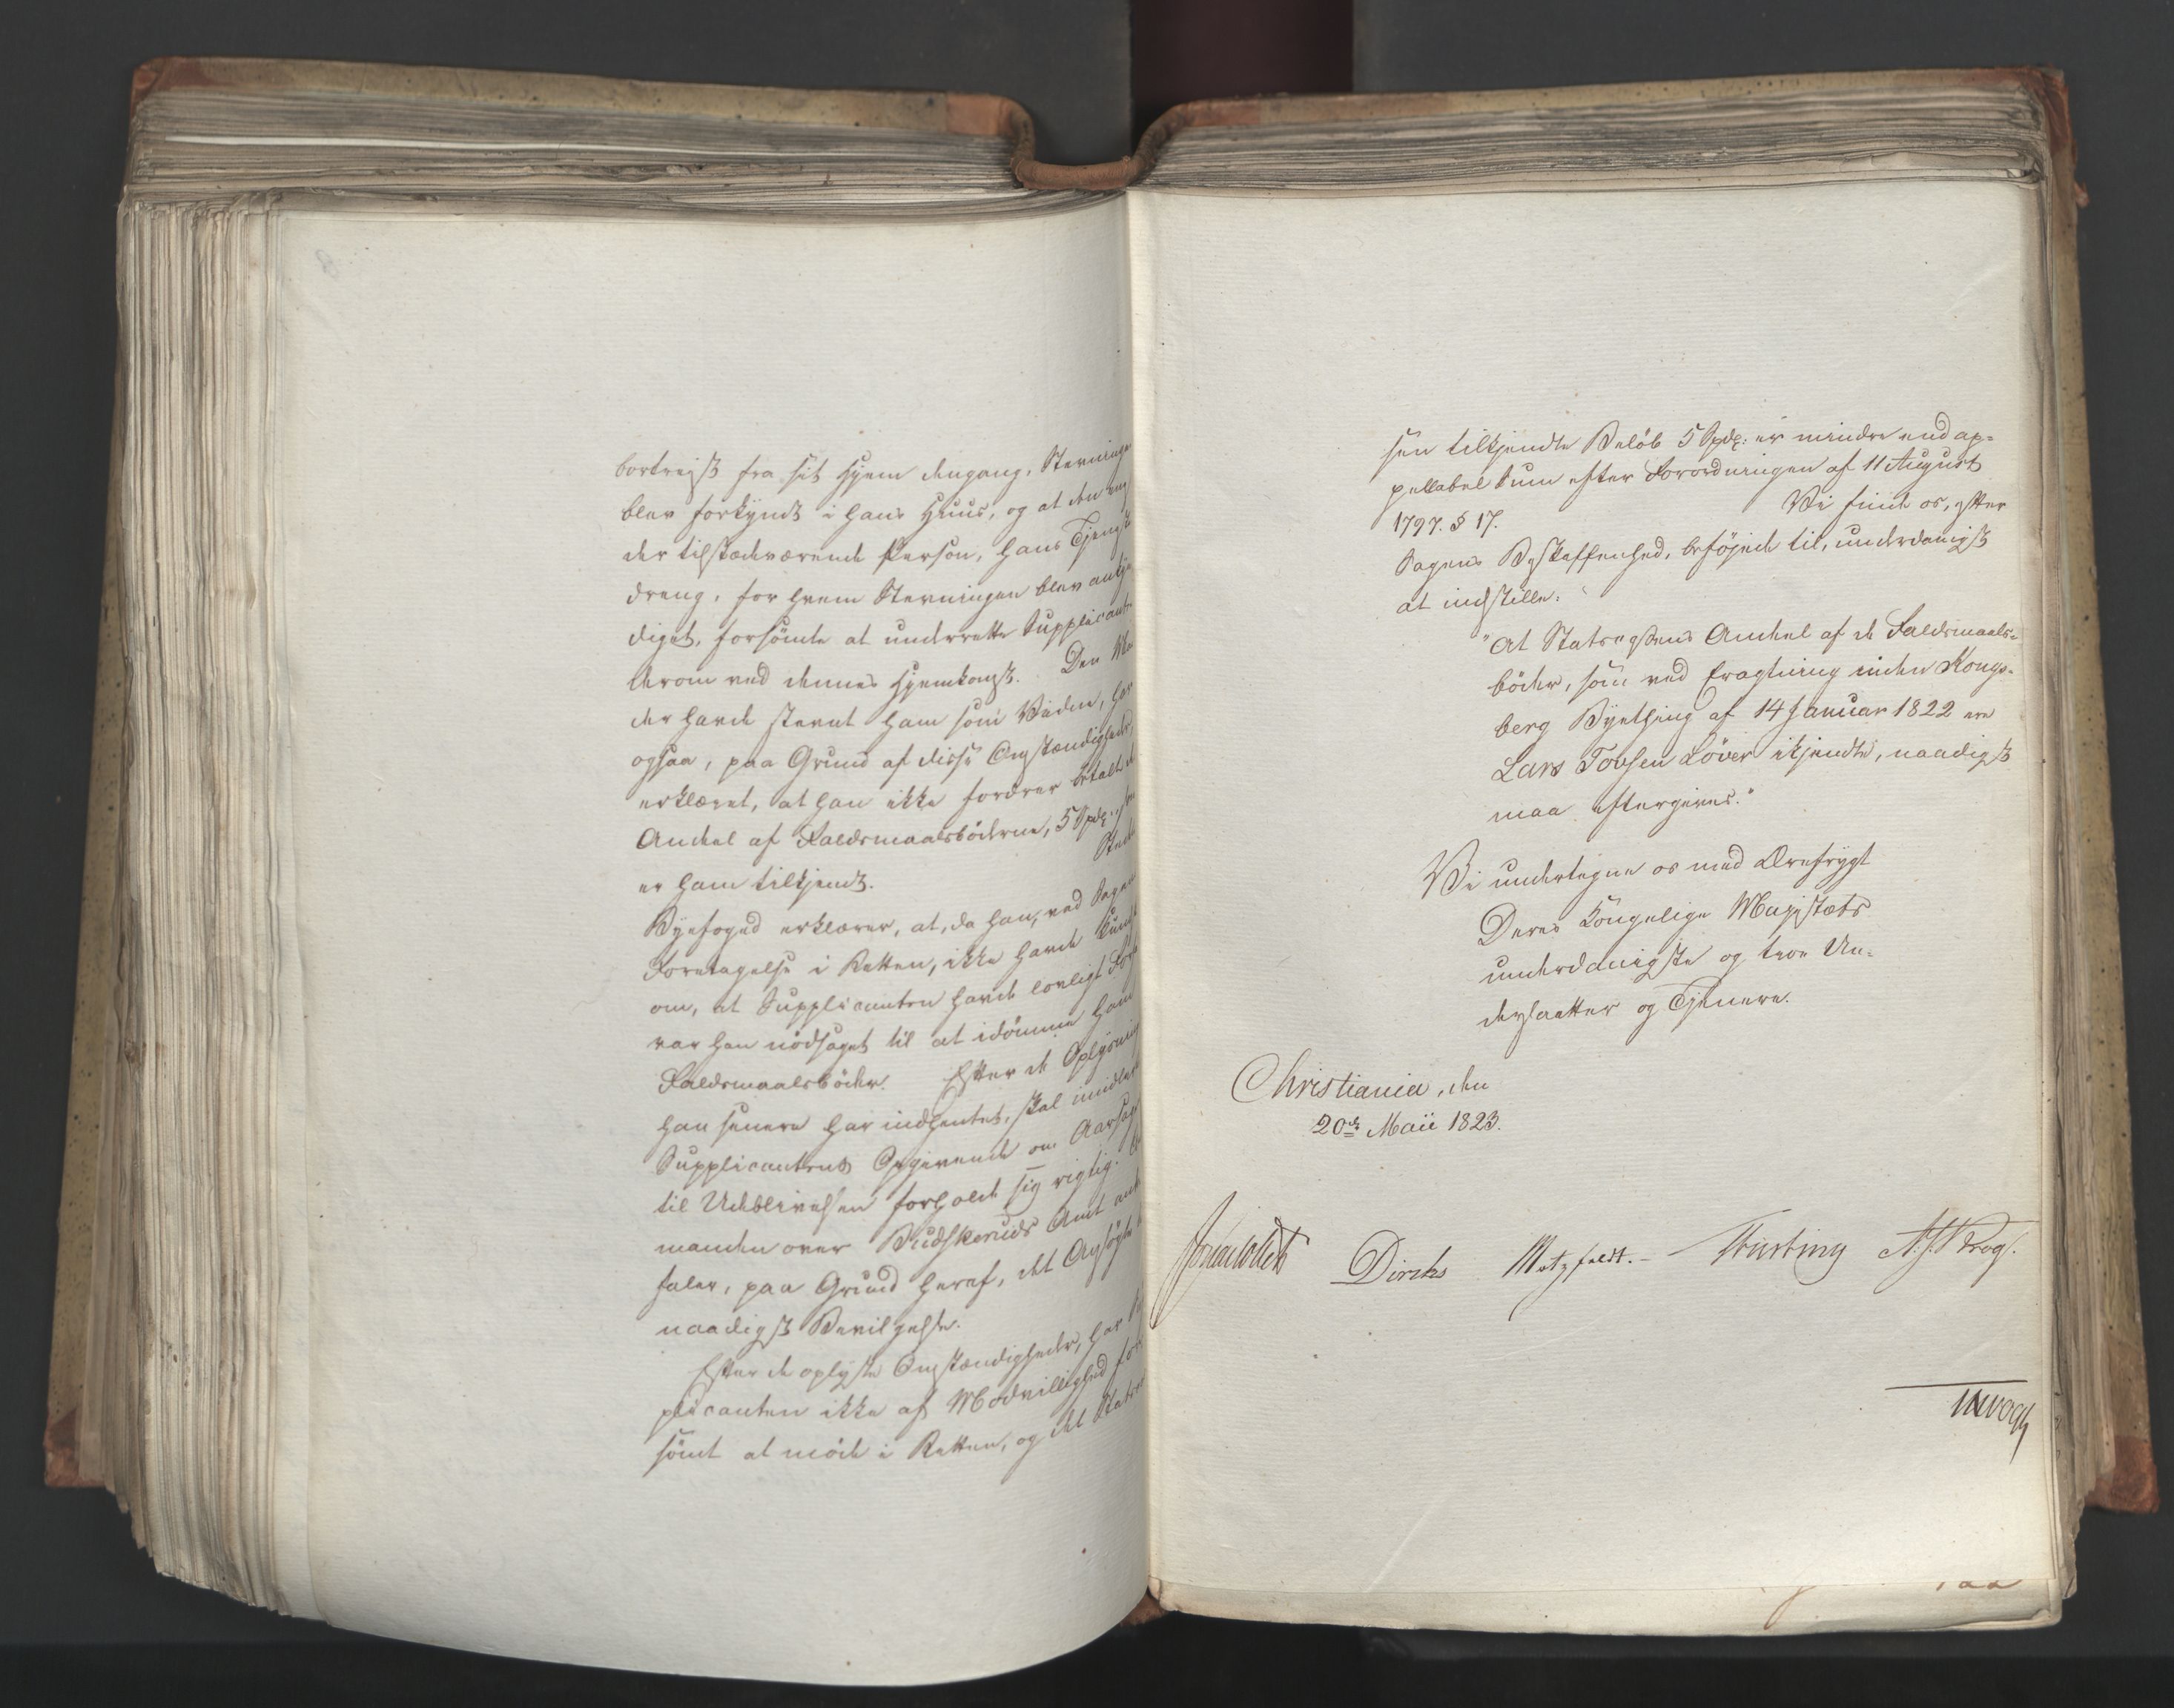 bortrejst fra sit Hjem dengang, Stevningen
blev forkyndt i hans Huus, og at den eneste
der tilstedeværende Person, hans Tjeneste-
dreng, for hvem Stevningen blev ankyn-
diget, forsömte at underrette Supplicanten
derom ved dennes Hjemkomst. Den Mand
der havde stevnet ham som Vidne, har
ogsaa, paa Grund af disse Omstændigheder,
erklæret, at han ikke fordrer betalt den
Andeel af Faldsmaalsböderne, 5 Spdr., som
er ham tilkjendt. Stedets
Byefoged erklærer, at, da han, ved Sagens
Foretagelse i Retten, ikke havde Kundskab
om, at Supplicanten havde lovligt Forfald
var han nödsaget til at idömme ham
Faldsmaalsböder. Efter de Oplysninger
han senere har indhentet, skal imidlertid
Supplicantens Opgivende om Aarsagen
til Udeblivelsen forholde sig rigtig.
manden over Budskeruds Amt anbe-
faler, paa Grund heraf, det Ansögte til
naadigst Bevilgelse.
Efter de oplyste Omstændigheder, har Sup-
plicanten ikke af Modvillighed for-
sömt at möde i Retten, og det Stats-
sen tilkjendte Belöb 5 Spdr: er mindre end ap-
pellabel Sum efter Forordningen af 11 August
1797. § 17. Vi finde os, efter
Sagens Beskaffenhed, beföjede til, underdanigst
at indstille:
"At Statscassens Andeel af de Faldsmaals-
böder, som ved Eragtning inden Kongs-
berg Byething af 14 Januar 1822 ere
Lars Torsen Löver ikjendte, naadigst
maa eftergives."
Vi undertegne os med Ærefrygt
Deres Kongelige Majestæts
underdanigste og troe Un-
dersaatter og Tjenere.
Christiania, den
20de Maii 1823.
Diriks Motzfeldt. Krog.
Vogt